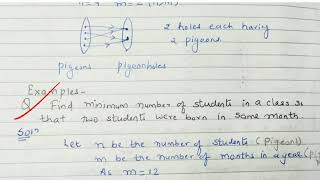 2 holes each having
2 pigeons
pigeons pigeonholes
Examples-
Q. Find minimum number of students in a class so
that two students were born in same month.
Sol:n
Let n be the number of students (Pigeons)
m be the number of months in a year (pig
As m=12